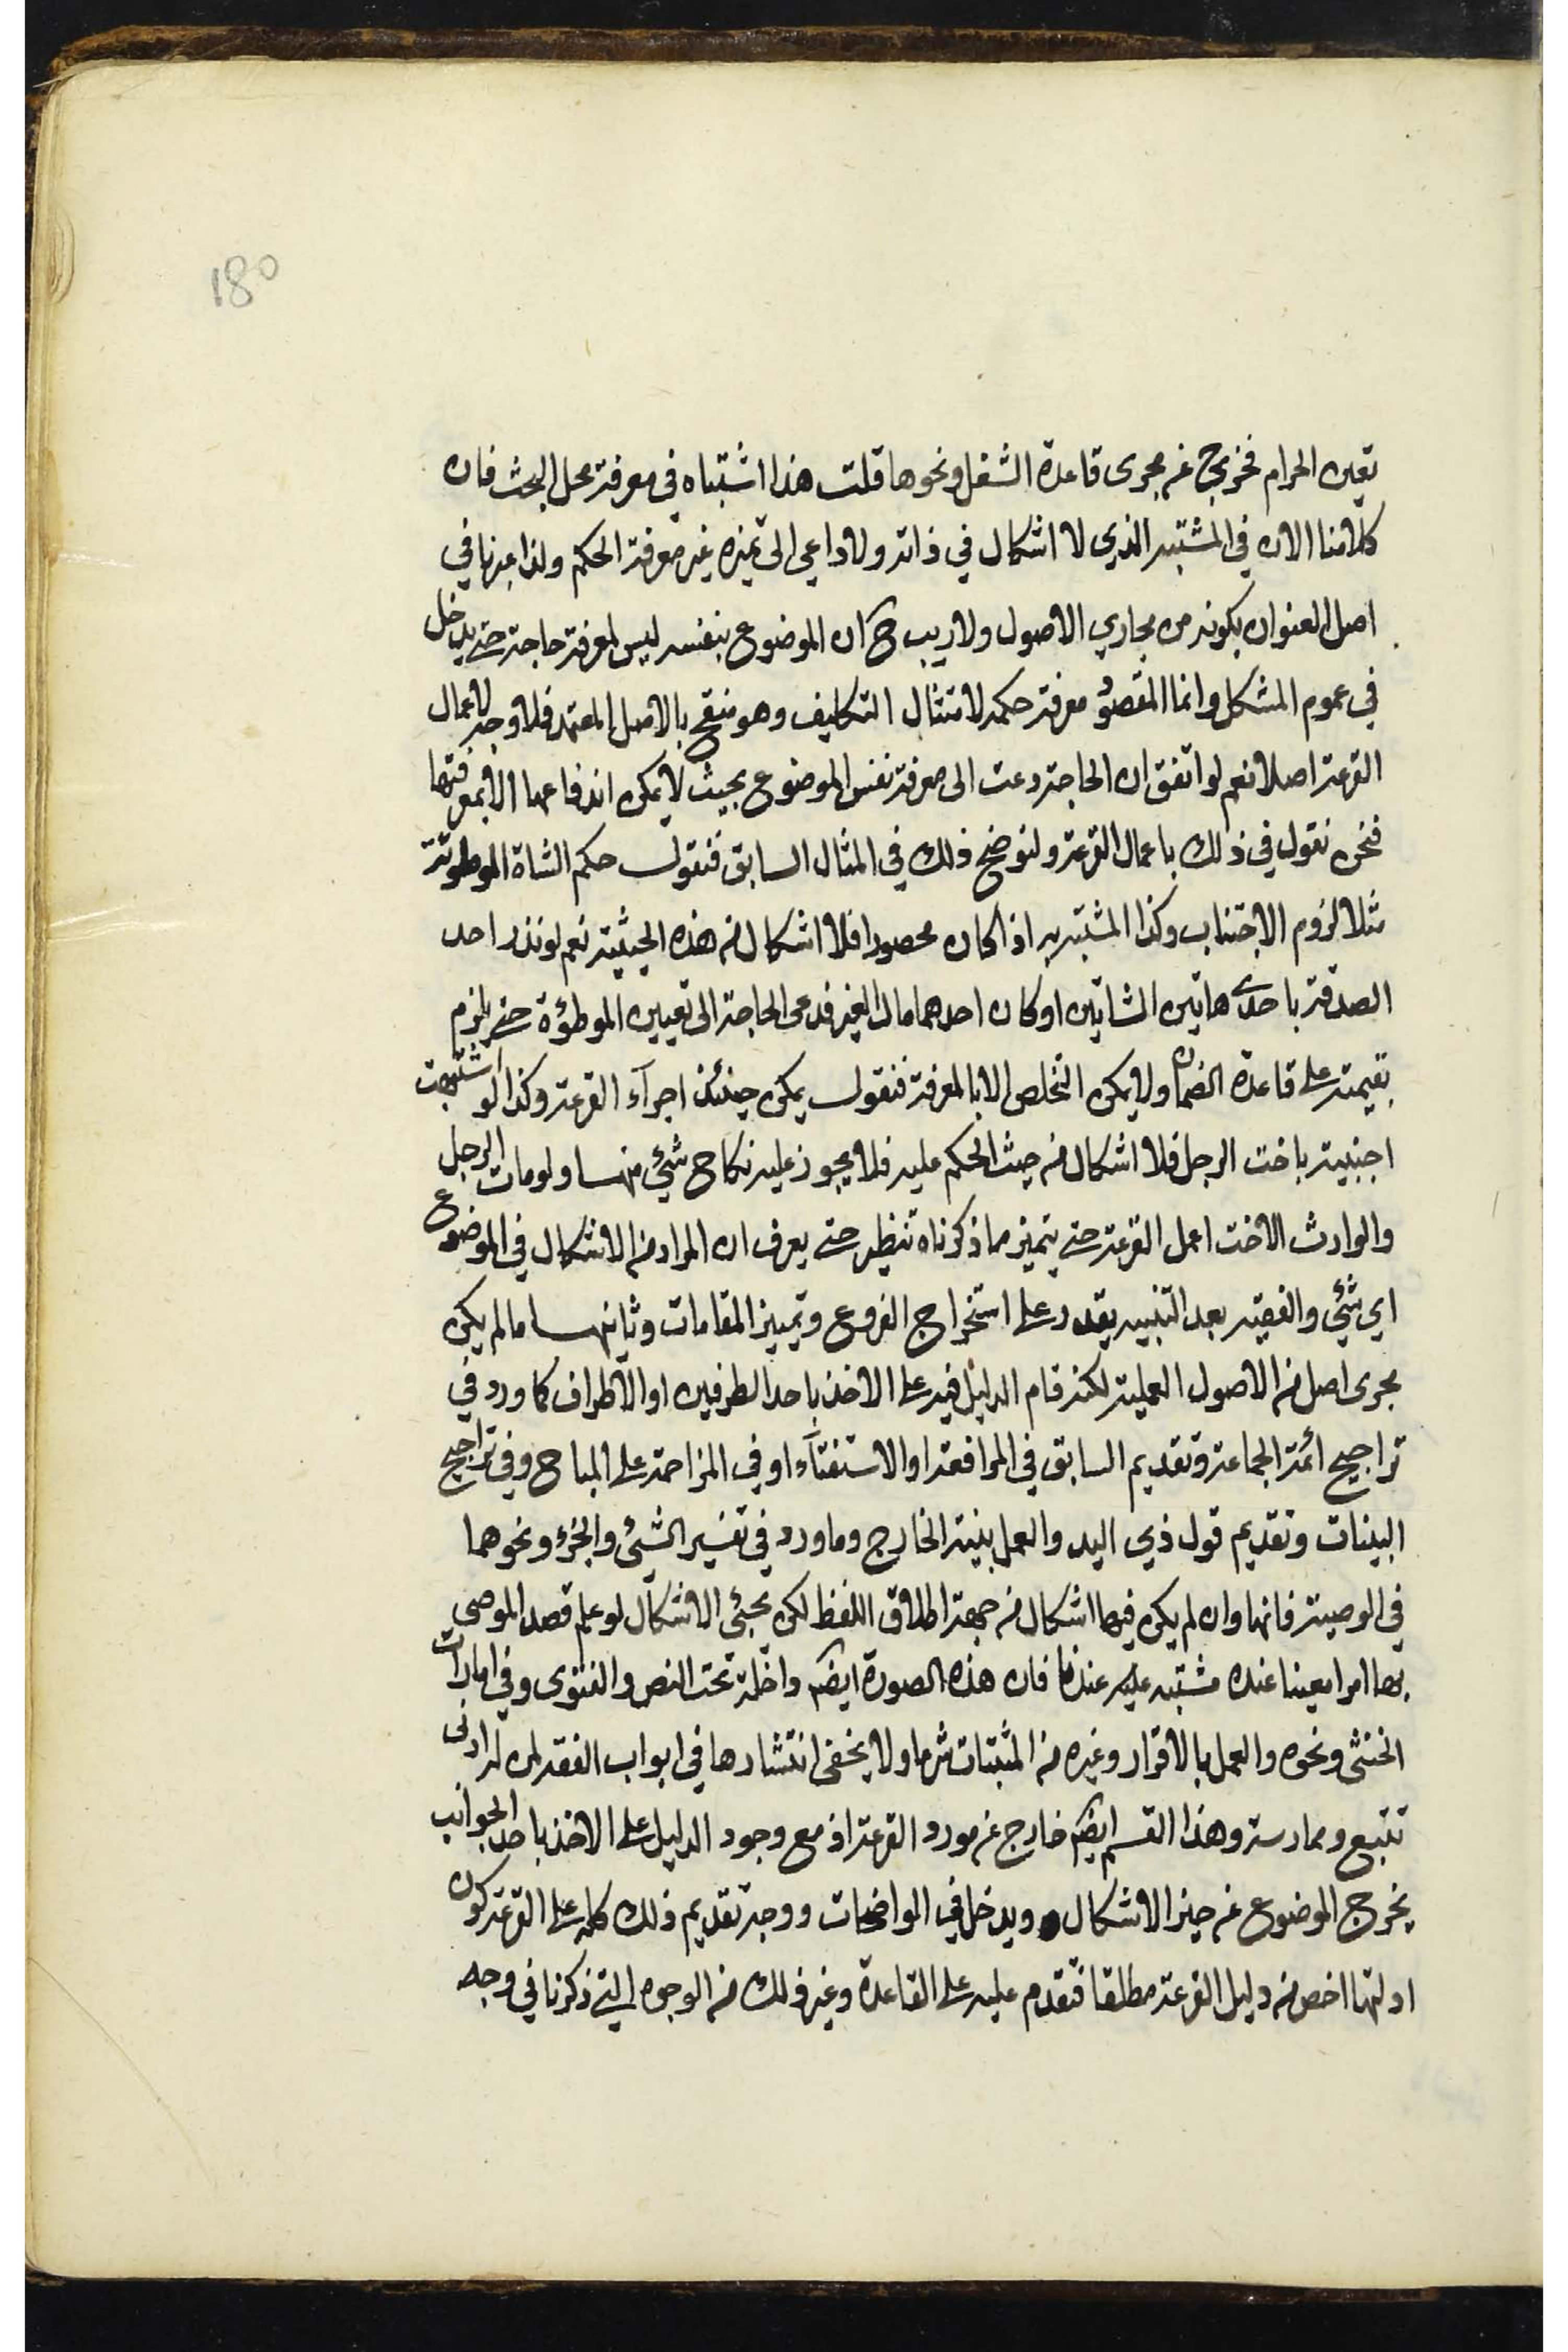 180
تعين الحرام فخرج عن مجرى قاعدة الشغل ونحوها قلت هذا اشتباه في معرفة محل البحث فان
كلامنا الان في المشتبه الذي لا اشكال في ذاته ولا داعي الى تميزه غير معرفة الحكم ولذا عبرنا في
اصل العنوان بكونه من مجاري الاصول ولا ريب ح ان الموضوع بنفسه ليس لمعرفته حاجة حتى يدخل
في عموم المشكل وانما المقصود معرفة حكمه لامتثال التكليف وهو منقح بالاصل المعتمد فلا وجه لاعمال
القرعة اصلا نعم لو اتفق ان الحاجة دعت الى معرفة نفس الموضوع بحيث لا يمكن اندفاعها الا بمعرفتها
فنحن نقول في ذلك باعمال القرعة ولنوضح ذلك في المثال السابق فنقول حكم الشاة الموطوئة
مثلا لزوم الاجتناب وكذا المشتبه به اذا كان محصورا فلا اشكال من هذه الحيثية نعم لو نذر احد
الصدقة باحدى هاتين الشاتين او كان احدهما مال الغير فدعى الحاجة الى تعيين الموطوءة حتى يلزم
بقيمته على قاعدة الضمان ولا يمكن التخلص الا بالمعرفة فنقول يمكن حينئذ اجرآء القرعة وكذا لو اشتبهت
اجنبية باخت الرجل فلا اشكال من حيث الحكم عليه فلا يجوز عليه نكاح شيئ منهما ولو مات الرجل
والوارث الاخت اعمل القرعة حتى يتميز مما ذكرناه تنظير حتى يعرف ان المراد من الاشكال في الموضوع
اي شيئ والفقيه بعد التنبيه يقدر على استخراج الفروع وتمييز المقامات وثانيها ما لم يكن
مجرى اصل من الاصول العملية لكنه قام الدليل فيه على الاخذ باحد الطرفين او الاطراف كما ورد في
تراجيح ائمة الجماعة وتقديم السابق في المرافعة او الاستفتآء او في المزاحمة على المباح وفي تراجيح
البينات وتقديم قول ذي اليد والعمل ببينة الخارج وما ورد في تفسير الشيئ والجزء ونحوهما
في الوصية فانها وان لم يكن فيها اشكال من جهة اطلاق اللفظ لكن يجئى الاشكال لو علم قصد الموصي
بها امرا معينا عنده مشتبه عليه عندنا فان هذه الصورة ايضا داخلة تحت النص والفتوى وفي امارات
الخنثى ونحوه والعمل بالاقرار وغيره من المثبتات شرعا ولا يخفى انتشارها في ابواب الفقه لمن له ادنى
تتبع وممارسة وهذا القسم ايضا خارج عن مورد القرعة اذ مع وجود الدليل على الاخذ باحد الجوانب
يخرج الموضوع عن حيز الاشكال ويدخل في الواضحات ووجه تقديم ذلك كله على القرعة كون
ادلتها اخص من دليل القرعة مطلقا فتقدم عليه على القاعدة وغير ذلك من الوجوه التي ذكرنا في وجه